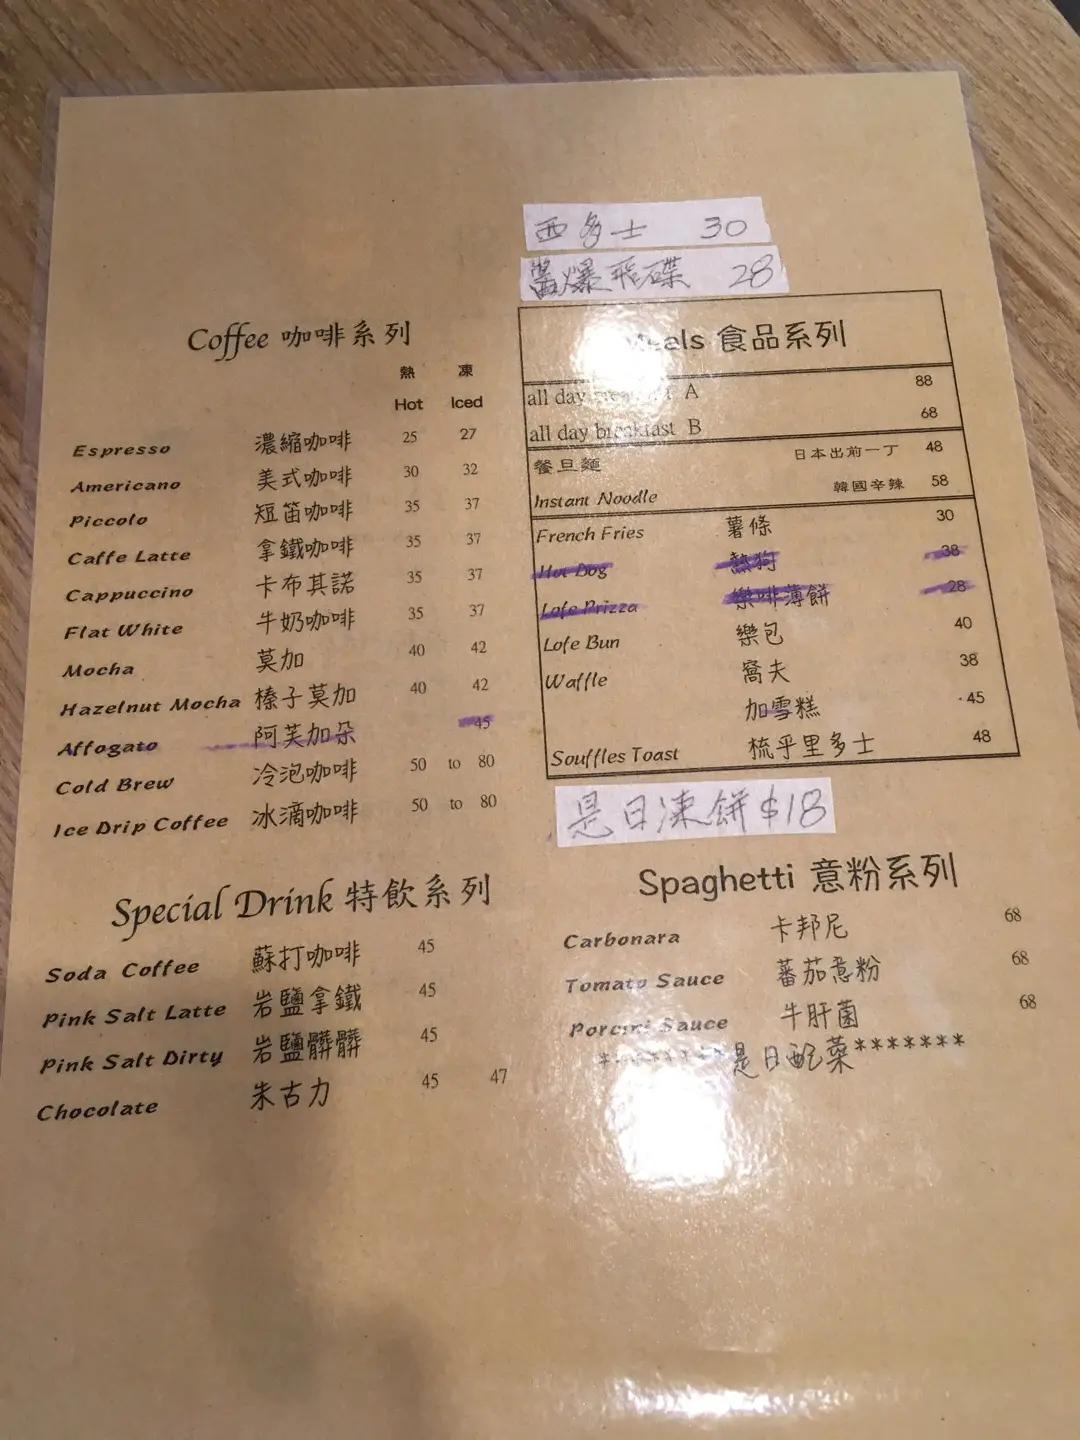 Coffee 咖啡系列
熱 凍
Hot Iced
Espresso 濃縮咖啡 25 27
Americano 美式咖啡 30 32
Piccolo 短笛咖啡 35 37
Caffe Latte 拿鐵咖啡 35 37
Cappuccino 卡布其諾 35 37
Flat White 牛奶咖啡 35 37
Mocha 莫加 40 42
Hazelnut Mocha 榛子莫加 40 42
Affogato 阿芙加朵 45
Cold Brew 冷泡咖啡 50 to 80
Ice Drip Coffee 冰滴咖啡 50 to 80
Special Drink 特飲系列
Soda Coffee 蘇打咖啡 45
Pink Salt Latte 岩鹽拿鐵 45
Pink Salt Dirty 岩鹽髒髒 45
Chocolate 朱古力 45 47
西多士 30
醬爆飛碟 28
Meals 食品系列
all day breakfast A 88
all day breakfast B 68
餐旦麵 日本出前一丁 48
Instant Noodle 韓國辛辣 58
French Fries 薯條 30
Hot Dog 熱狗 38
Lofe Prizza 樂啡薄餅 28
Lofe Bun 樂包 40
Waffle 窩夫 38
加雪糕 45
Souffles Toast 梳乎里多士 48
是日凍餅 $18
Spaghetti 意粉系列
Carbonara 卡邦尼 68
Tomato Sauce 蕃茄意粉 68
Porcini Sauce 牛肝菌 68
********是日配菜*******